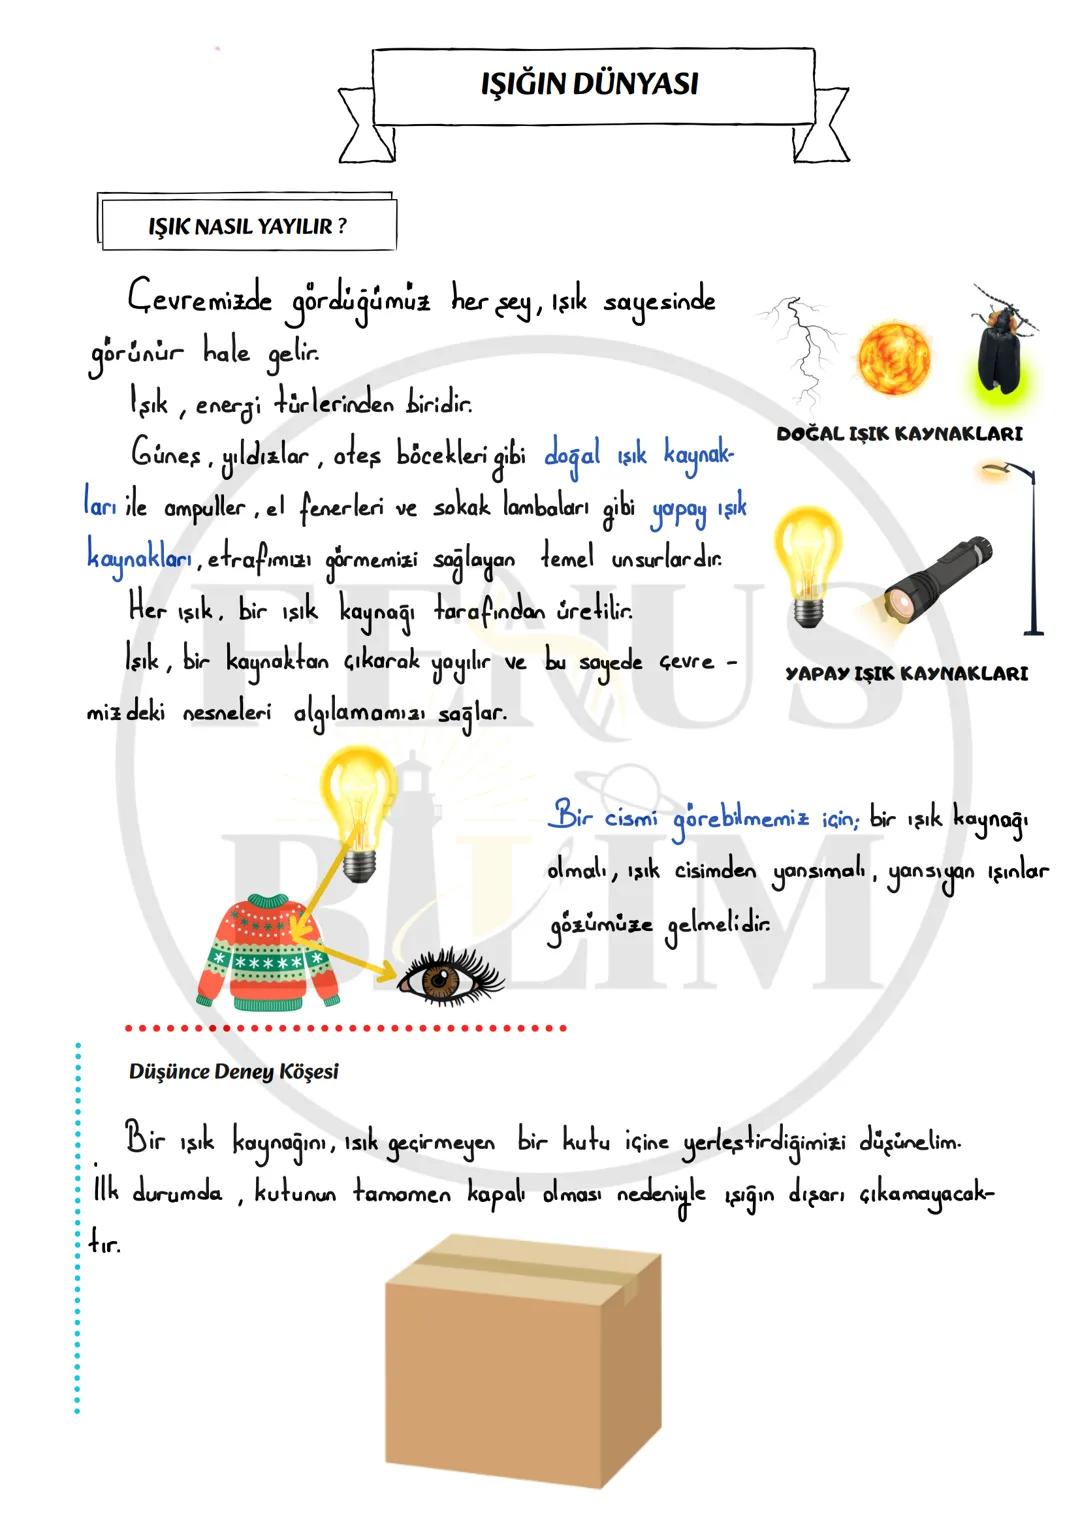 IŞIĞIN DÜNYASI
IŞIK NASIL YAYILIR ?
Çevremizde gördüğümüz her şey, ışık sayesinde
görünür hale gelir.
Işık, energi türlerinden biridir.
Güneş, yıldızlar, ateş böcekleri gibi doğal ışık kaynak-
ları ile ampuller, el fenerleri ve sokak lambaları gibi yapay ışık
kaynakları, etrafımızı görmemizi sağlayan temel unsurlardır.
Her ışık, bir ışık kaynağı tarafından üretilir.
Işık, bir kaynaktan çıkarak yayılır ve bu sayede çevre -
mizdeki nesneleri algılamamızı sağlar.
DOĞAL IŞIK KAYNAKLARI
YAPAY IŞIK KAYNAKLARI
Bir cismi görebilmemiz için; bir ışık kaynağı
olmalı, ışık cisimden yansımalı, yansıyan ışınlar
gözümüze gelmelidir.
Düşünce Deney Köşesi
Bir ışık kaynağını, ışık geçirmeyen bir kutu içine yerleştirdiğimizi düşünelim.
İlk durumda, kutunun tamamen kapalı olması nedeniyle ışığın dışarı çıkamayacak-
tır.
FENUS
BİLİM